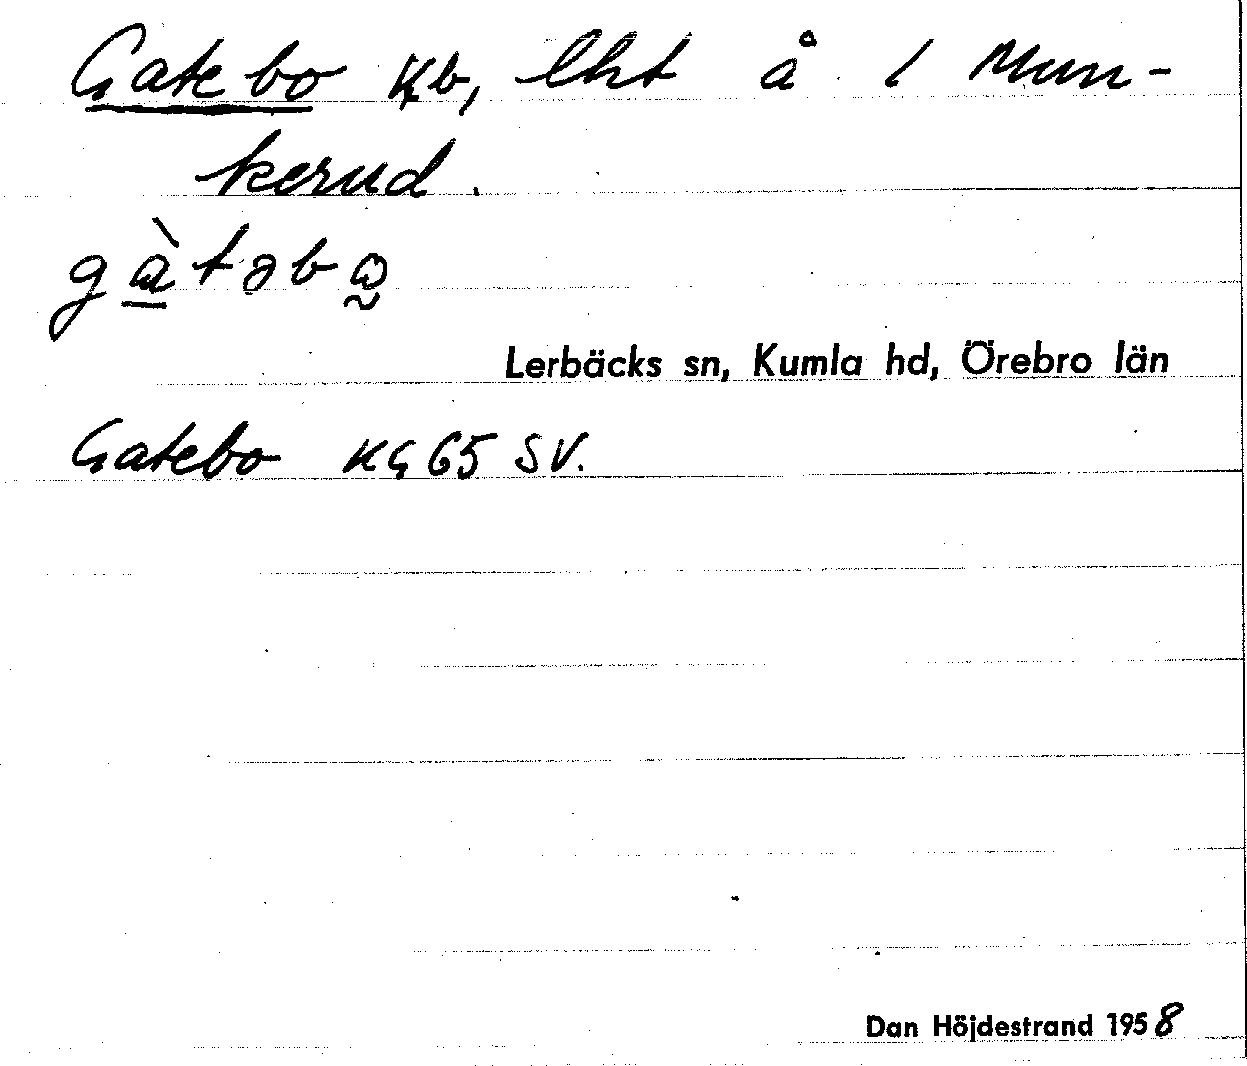 Gatebo Kb, lht å 1 Mun-
kerud.
gàtəbω
Lerbäcks sn, Kumla hd, Örebro län
Gatebo KG65 SV.
Dan Höjdestrand 1958